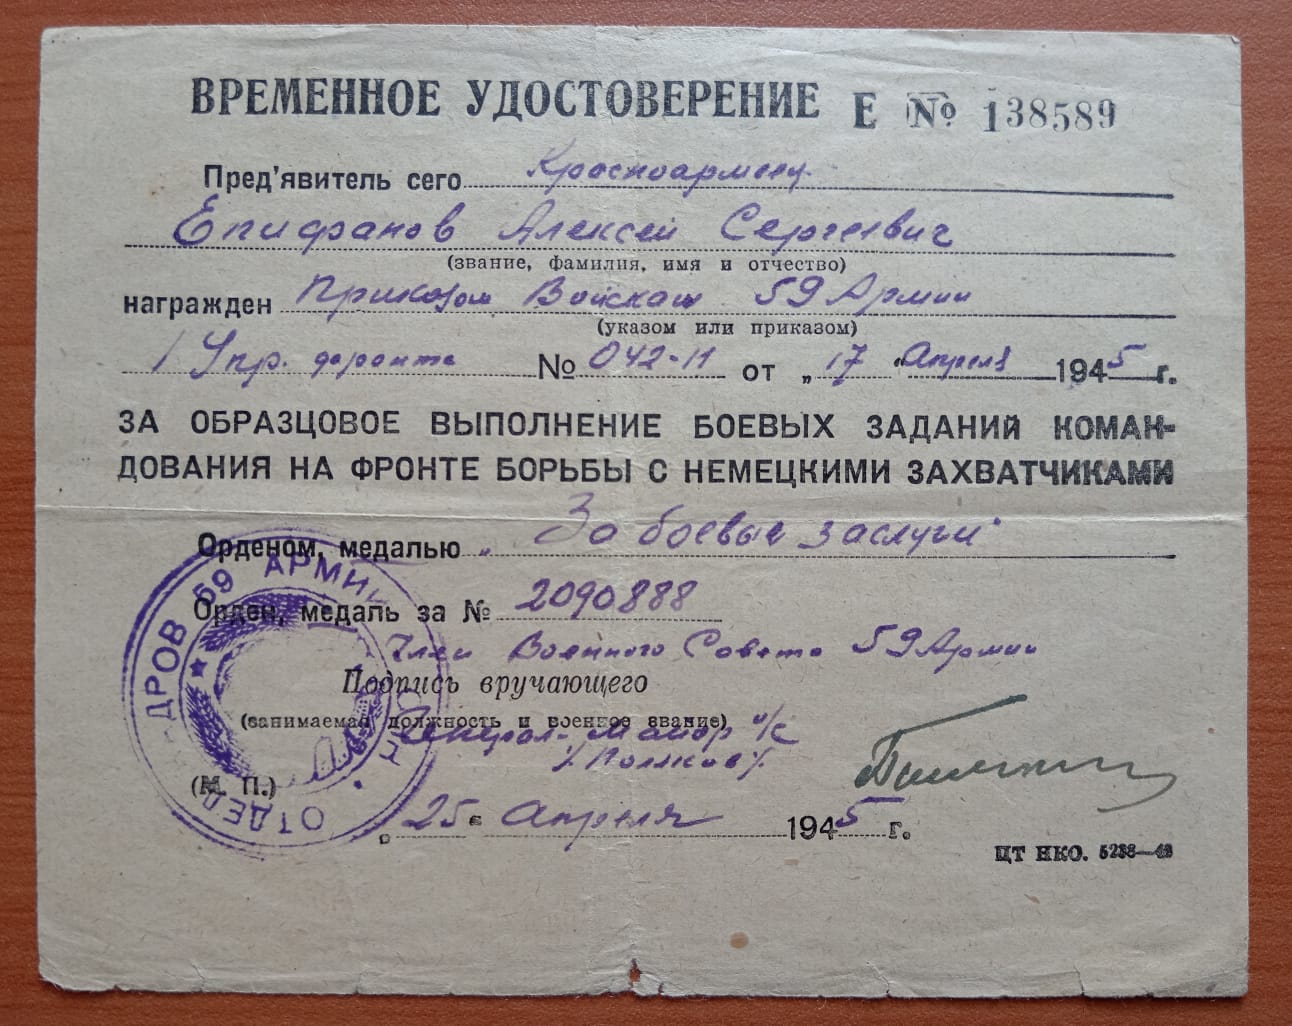 ВРЕМЕННОЕ УДОСТОВЕРЕНИЕ Е № 138589
Пред'явитель сего Красноармеец
Епифанов Алексей Сергеевич
(звание, фамилия, имя и отчество)
награжден Приказом Войскам 59 Армии
(указом или приказом)
1 Укр. фронта № 042-н от „17" Апреля 1945 г.
ЗА ОБРАЗЦОВОЕ ВЫПОЛНЕНИЕ БОЕВЫХ ЗАДАНИЙ КОМАН-
ДОВАНИЯ НА ФРОНТЕ БОРЬБЫ С НЕМЕЦКИМИ ЗАХВАТЧИКАМИ
Орденом, медалью „За боевые заслуги"
Орден, медаль за № 2090888
Член Военного Совета 59 Армии
Подпись вручающего
(занимаемая должность и военное звание)
Генерал-майор и/с
/Поляков/
(М. П.)
„25" апреля 1945 г.
ЦТ НКО. 5238—43
ОТДЕЛ КАДРОВ 59 АРМИИ